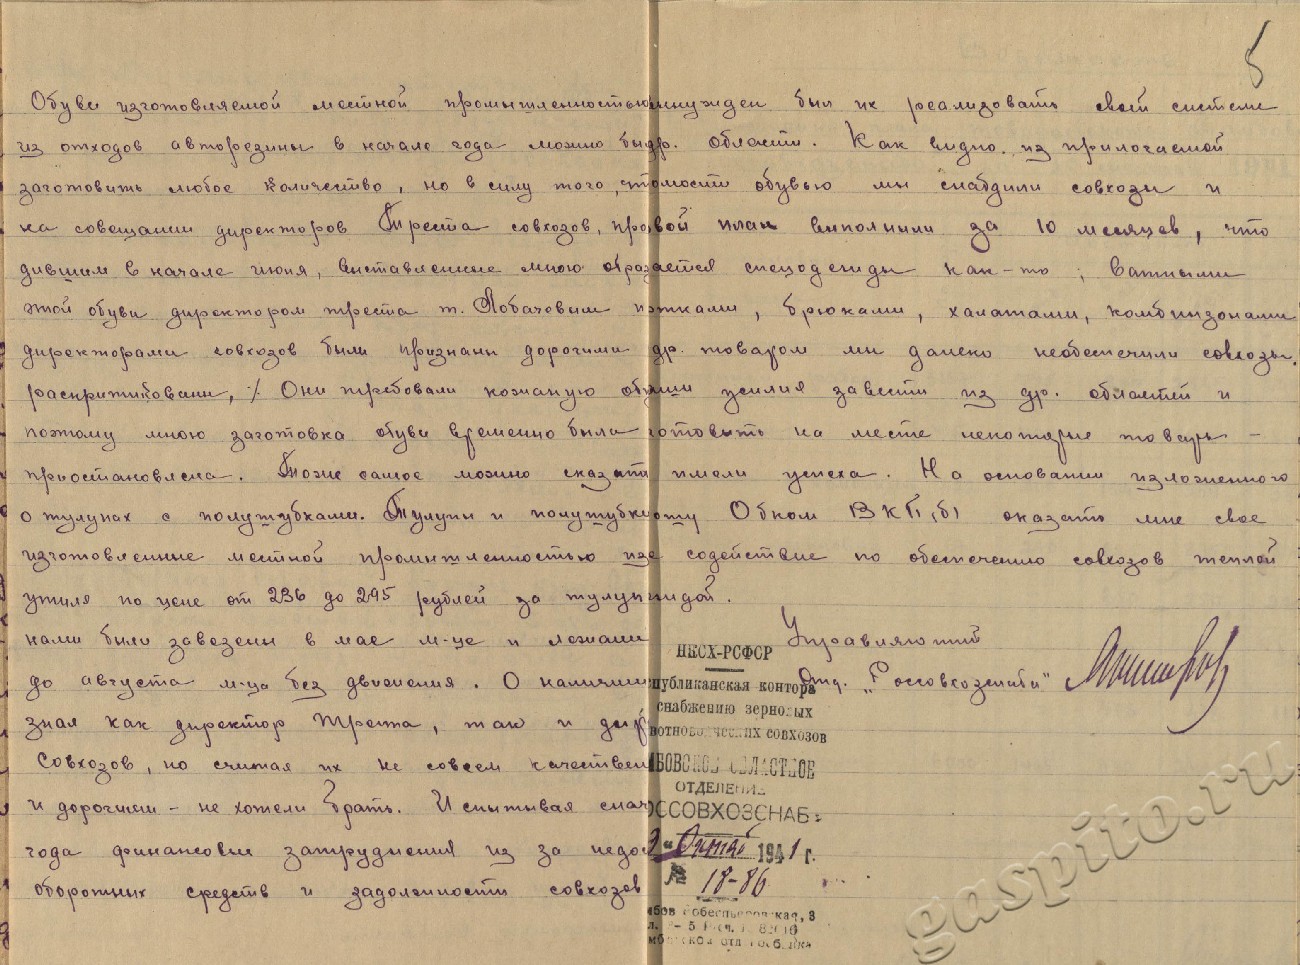 5
Обуви изготовляемой местной промышленностью
из отходов авторезины в начале года можно бы
заготовить любое количество, но в силу того, что
на совещании директоров Треста совхозов, прохо
дившем в начале июня, выставленные мною образ
этой обуви директором треста т. Лобачовым и
директорами совхозов были признаны дорогими
раскритикованы, % Они требовали кожаную обу
поэтому мною заготовка обуви временно была
приостановлена. Тоже самое можно сказать
о тулупах с полушубками. Тулупы и полушубки
изготовленные местной промышленностью из
утиля по цене от 236 до 295 рублей за тулуп
нами были завезены в мае м-це и лежали
до августа м-ца без движения. О наличии
знал как директор Треста, так и дир
Совхозов, но считая их не совсем качествен
и дорогими - не хотели брать. Испытывая
года финансовые затруднения из за недо
оборотных средств и задолжности совхозов
вынужден был их реализовать своей системе
др. области. Как видно из прилогаемой
обувью мы снабдили совхозы и
план выполнили за 10 месяцев, что
спецодежды как-то; Ватными
брюками, халатами, комбинзонами
др. товаром мы далеко необеспечили совхозы.
усилия завести из др. областей и
готовить на месте некоторые товары -
имели успеха. На основании изложенного
Обком ВКП(б) оказать мне свое
содействие по обеспечению совхозов теплой
Управляющий
Отд. "Россовхозснаба"
НКСХ-РСФСР
публиканская контора
снабжению зерновых
вотноводческих совхозов
БОВСКОЕ ОБЛАСТНОЕ
ОТДЕЛЕНИЕ
ОССОВХОЗСНАБ
1941 г.
№ 18-86
gaspito.ru